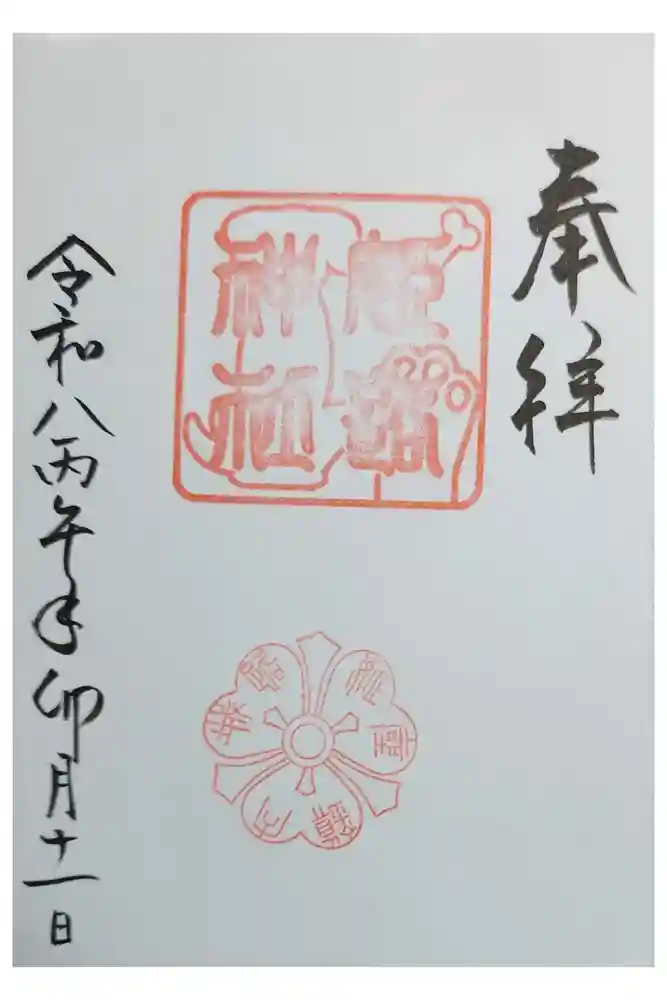 奉拝
姫路
神社
令和八丙午年卯月十一日